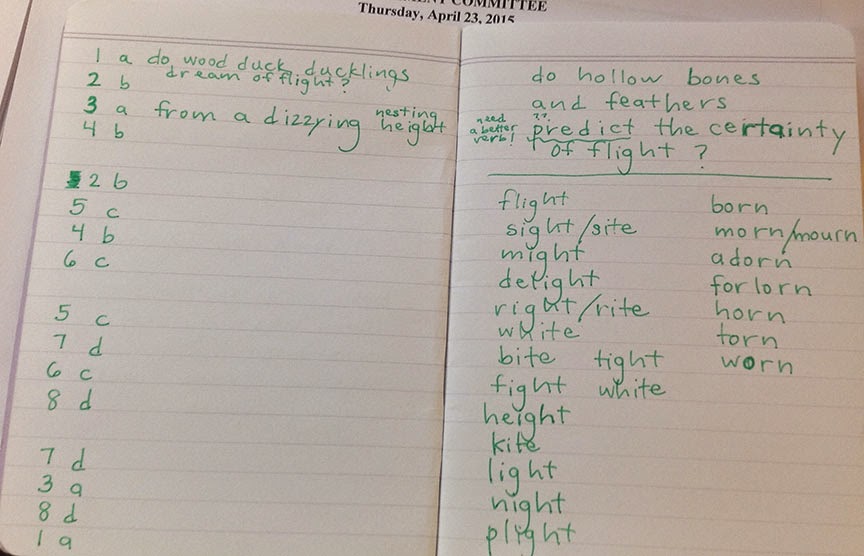 COMMITTEE
Thursday, April 23, 2015
1 a do wood duck ducklings
dream of flight?
2 b
3 a from a dizzying nesting height
4 b
2 b
5 c
4 b
6 c
5 c
7 d
6 c
8 d
7 d
3 a
8 d
1 a
do hollow bones
and feathers
need a better verb! ?? predict the certainty
of flight ?
flight
sight/site
might
delight
right/rite
white
bite tight
fight white
height
kite
light
night
plight
born
morn/mourn
adorn
forlorn
horn
torn
worn